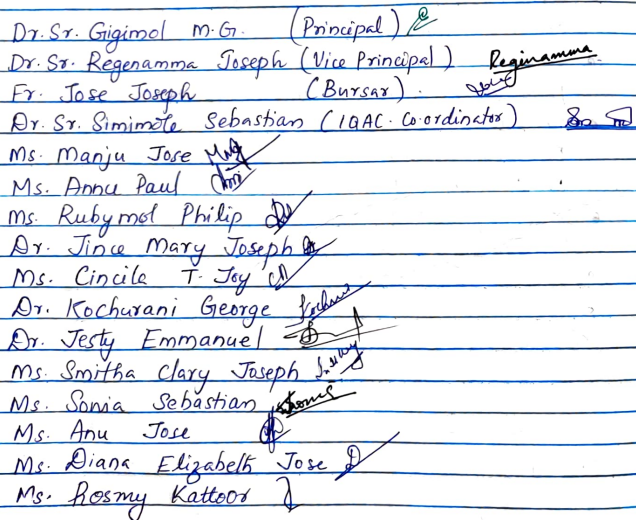 Dr. Sr. Gigimol M.G. (Principal)
Dr. Sr. Regenamma Joseph (Vice Principal) Reginamma
Fr. Jose Joseph (Bursar).
Dr. Sr. Simimole Sebastian (IQAC. Co-ordinator)
Ms. Manju Jose
Ms. Annu Paul
Ms. Rubymol Philip
Dr. Jince Mary Joseph
Ms. Cincila T. Joy
Dr. Kochurani George
Dr. Jesty Emmanuel
Ms. Smitha Clary Joseph
Ms. Sonia Sebastian
Ms. Anu Jose
Ms. Diana Elizabeth Jose
Ms. Rosmy Kattoor